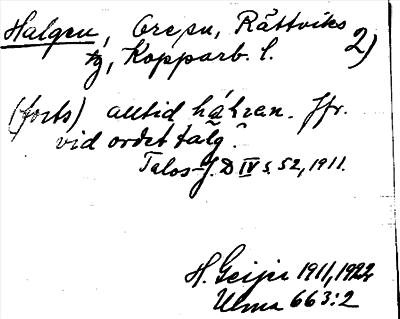 Halgen, Ore sn, Rättviks 2)
tg, Kopparb. l.
(forts) alltid háhran. Jfr.
vid ordet talg.
Talos-J. D IV s. 52, 1911.
H. Geijer 1911, 1922
Ulma 663:2